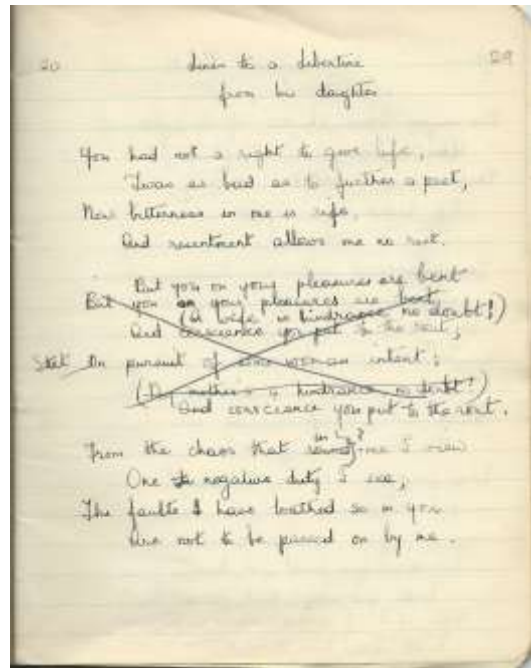 20 29
Lines to a Libertine
from his daughter
You had not a right to give life,
Twas as bad as to further a pest,
Now bitterness in me is rife,
And resentment allows me no rest.
But you on your pleasures are bent
But you on your pleasures are bent,
(A wife is hindrance no doubt!)
And conscience you put to the rout,
Stet On pursuit of some woman intent;
(My mother's a hindrance no doubt!)
And conscience you put to the rout.
From the chaos that in me I view
One negative duty I see,
The faults I have loathed so in you
Are not to be passed on by me.